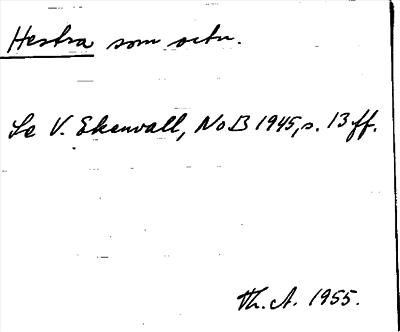 Hestra som ortn.
Se V. Ekenvall, NoB 1945, s. 13 ff.
Th. A. 1955.